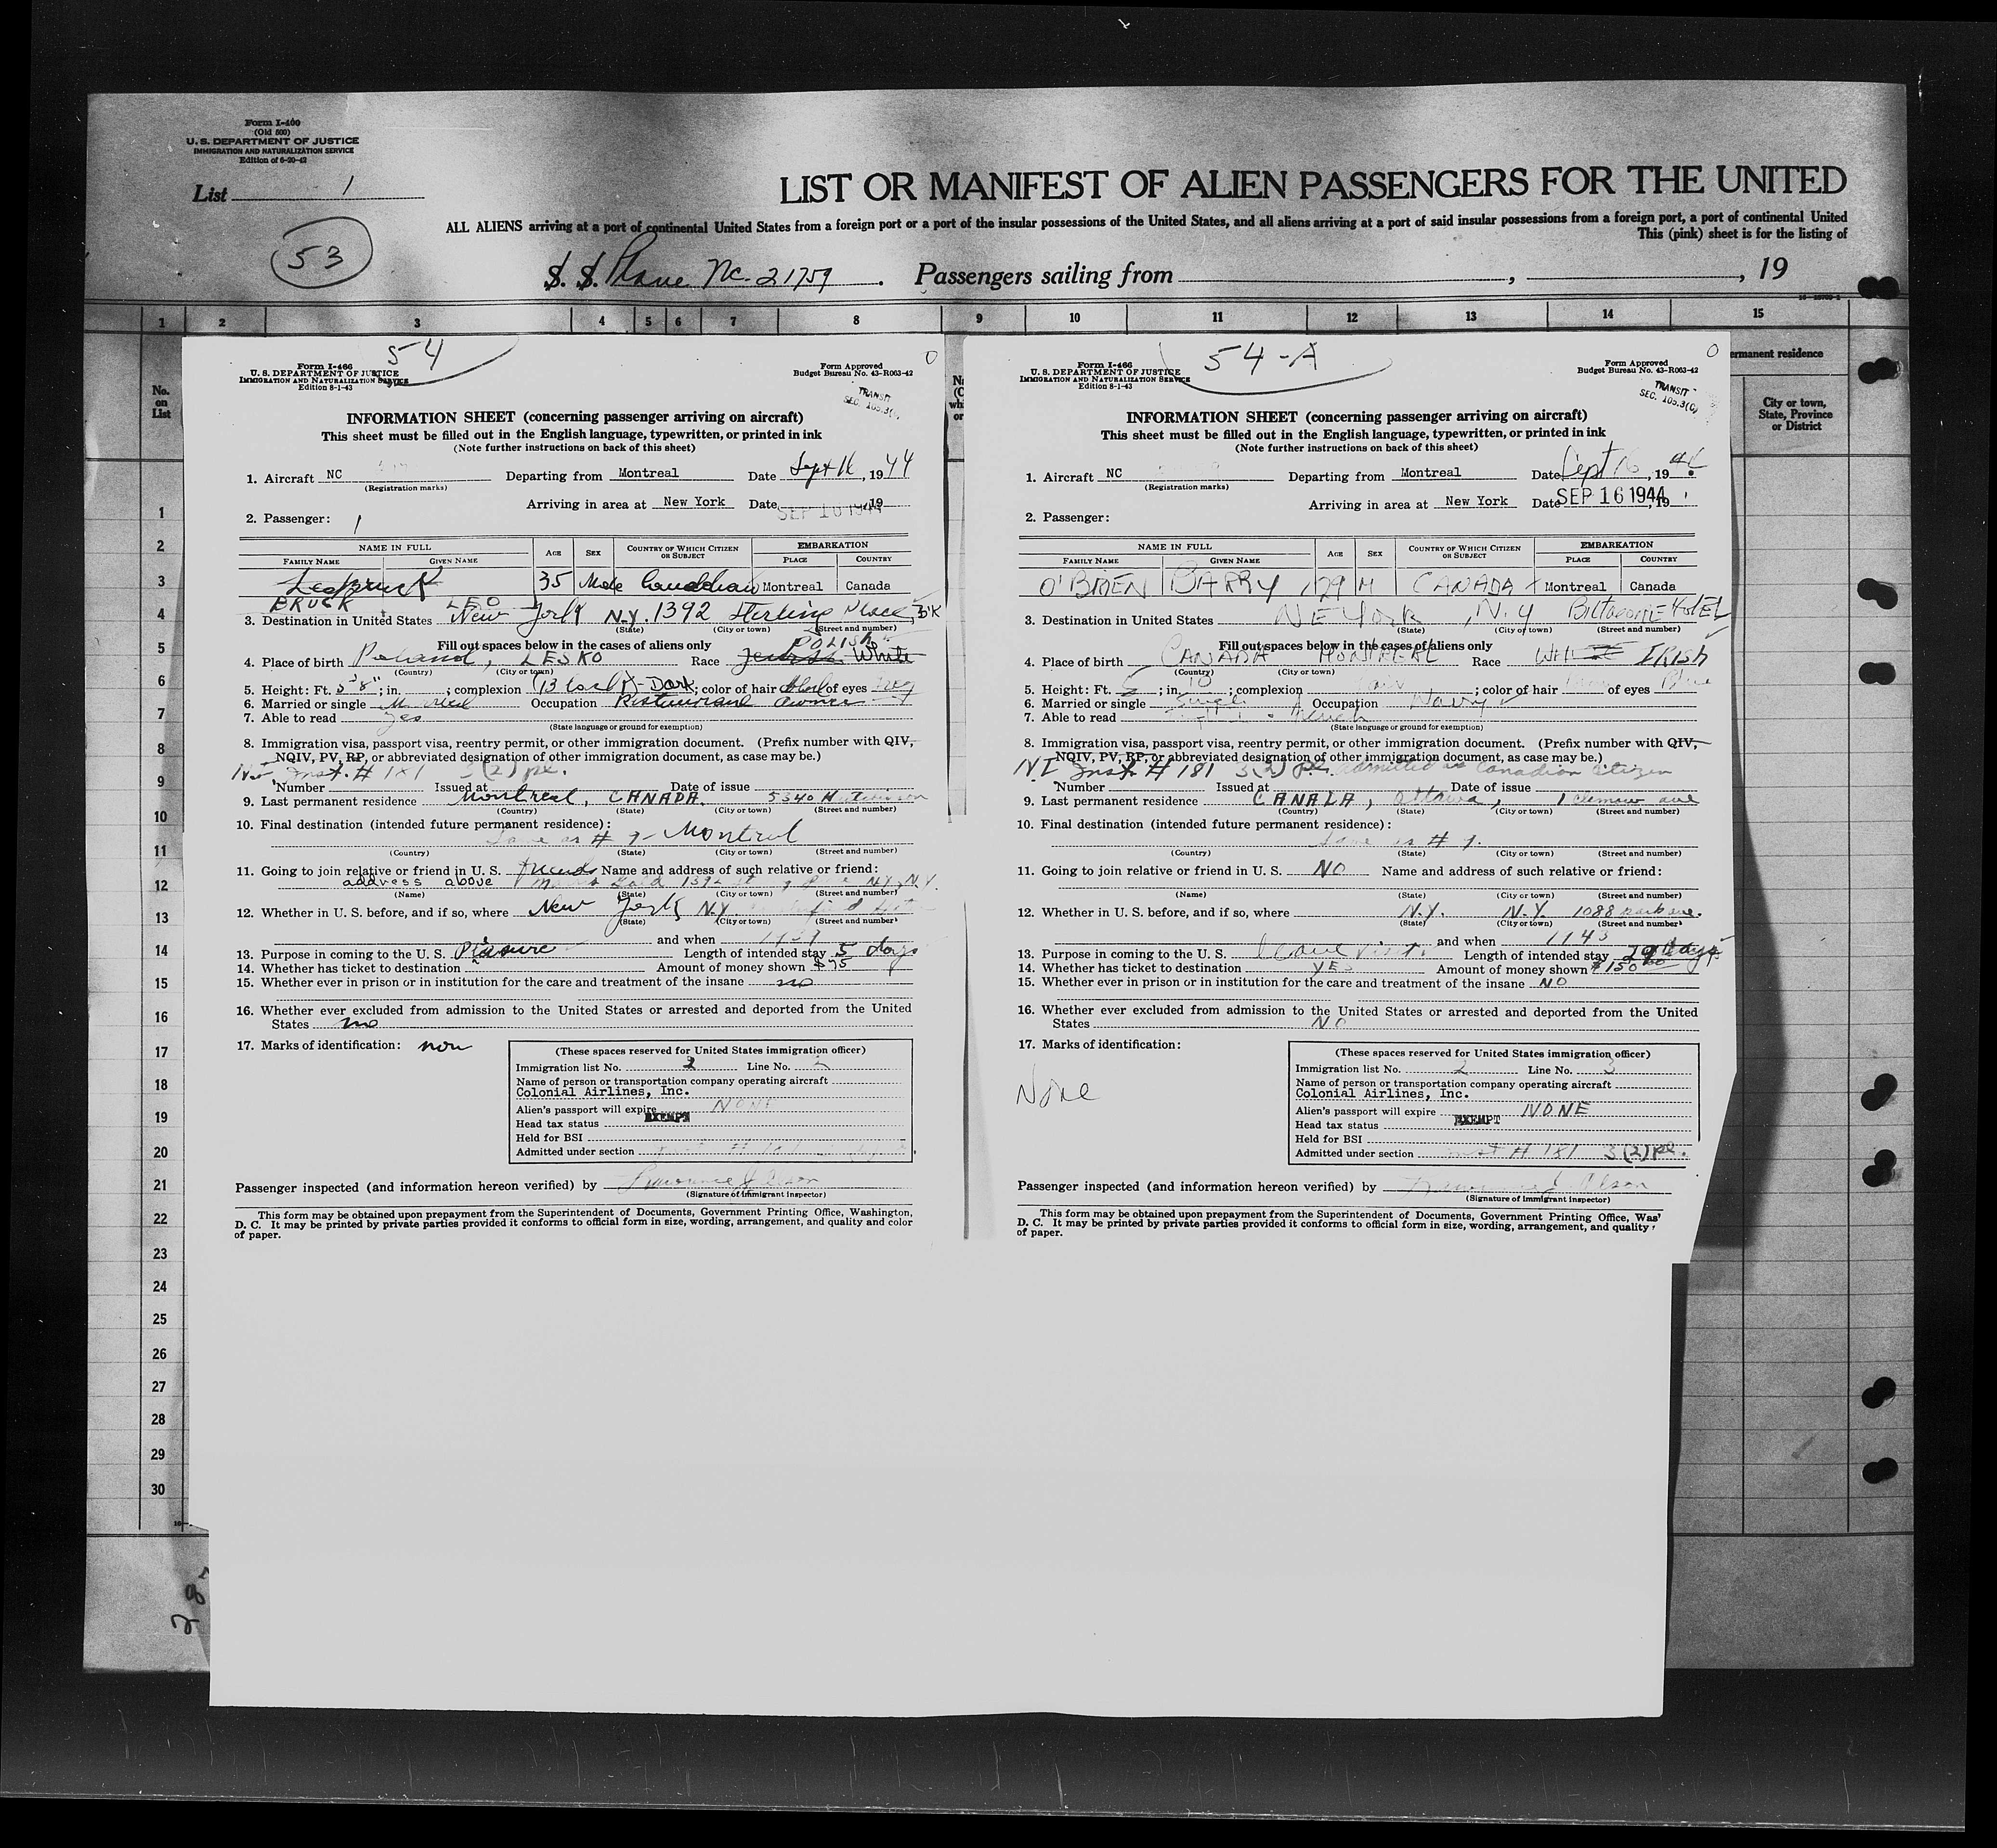 Form I-400
(Old 500)
U. S. DEPARTMENT OF JUSTICE
IMMIGRATION AND NATURALIZATION SERVICE
Edition of 6-20-42
List 1
LIST OR MANIFEST OF ALIEN PASSENGERS FOR THE UNITED
ALL ALIENS arriving at a port of continental United States from a foreign port or a port of the insular possessions of the United States, and all aliens arriving at a port of said insular possessions from a foreign port, a port of continental United
This (pink) sheet is for the listing of
53
S. S. Plane NC-21759. Passengers sailing from , , 19
1 2 3 4 5 6 7 8 9 10 11 12 13 14 15
No. on List
ermanent residence
City or town, State, Province or District
1
2
3
4
5
6
7
8
9
10
11
12
13
14
15
16
17
18
19
20
21
22
23
24
25
26
27
28
29
30
54
Form I-466
U. S. DEPARTMENT OF JUSTICE
IMMIGRATION AND NATURALIZATION SERVICE
Edition 8-1-43
Form Approved
Budget Bureau No. 43-R063-42
TRANSIT
SEC. 105.3(C)
INFORMATION SHEET (concerning passenger arriving on aircraft)
This sheet must be filled out in the English language, typewritten, or printed in ink
(Note further instructions on back of this sheet)
1. Aircraft NC Departing from Montreal Date Sept 16, 1944
(Registration marks)
Arriving in area at New York Date SEP 16 1944, 19
2. Passenger: 1
NAME IN FULL AGE SEX COUNTRY OF WHICH CITIZEN OR SUBJECT EMBARKATION
FAMILY NAME GIVEN NAME PLACE COUNTRY
35 Male Canadian Montreal Canada
BRUCK LEO
3. Destination in United States New York N.Y. 1392 Sterling Place, B'K
(State) (City or town) (Street and number)
Fill out spaces below in the cases of aliens only
POLISH
4. Place of birth Poland, LESKO Race Jewish White
(Country) (City or town)
5. Height: Ft. 5'8"; in. ; complexion Dark; color of hair of eyes
6. Married or single Married Occupation Restaurant owner
7. Able to read yes
(State language or ground for exemption)
8. Immigration visa, passport visa, reentry permit, or other immigration document. (Prefix number with QIV, NQIV, PV, RP, or abbreviated designation of other immigration document, as case may be.)
Inst. # 181 3(2) pl.
Number Issued at Date of issue
9. Last permanent residence Montreal, CANADA. 5340 Hutchison
(Country) (City or town) (Street and number)
10. Final destination (intended future permanent residence):
Same as # 9 - Montreal
(Country) (State) (City or town) (Street and number)
11. Going to join relative or friend in U. S. friend Name and address of such relative or friend:
address above Gold 1392 N.Y., N.Y.
(Name) (State) (City or town) (Street and number)
12. Whether in U. S. before, and if so, where New York N.Y.
(State) (City or town) (Street and number)
and when
13. Purpose in coming to the U. S. Pleasure Length of intended stay 5 days
14. Whether has ticket to destination Amount of money shown $75
15. Whether ever in prison or in institution for the care and treatment of the insane no
16. Whether ever excluded from admission to the United States or arrested and deported from the United
States no
17. Marks of identification: non
(These spaces reserved for United States immigration officer)
Immigration list No. 2 Line No. 2
Name of person or transportation company operating aircraft
Colonial Airlines, Inc.
Alien's passport will expire NONE
Head tax status EXEMPT
Held for BSI
Admitted under section
Passenger inspected (and information hereon verified) by Lawrence J. Olson
(Signature of immigrant inspector)
This form may be obtained upon prepayment from the Superintendent of Documents, Government Printing Office, Washington,
D. C. It may be printed by private parties provided it conforms to official form in size, wording, arrangement, and quality and color
of paper.
54-A
Form I-466
U. S. DEPARTMENT OF JUSTICE
IMMIGRATION AND NATURALIZATION SERVICE
Edition 8-1-43
Form Approved
Budget Bureau No. 43-R063-42
TRANSIT
SEC. 105.3(C)
INFORMATION SHEET (concerning passenger arriving on aircraft)
This sheet must be filled out in the English language, typewritten, or printed in ink
(Note further instructions on back of this sheet)
1. Aircraft NC Departing from Montreal Date Sept 16, 1944
(Registration marks)
Arriving in area at New York Date SEP 16 1944, 19
2. Passenger:
NAME IN FULL AGE SEX COUNTRY OF WHICH CITIZEN OR SUBJECT EMBARKATION
FAMILY NAME GIVEN NAME PLACE COUNTRY
O'BRIEN BARRY 29 M CANADA Montreal Canada
3. Destination in United States NEW York, N.Y BILTMORE HOTEL
(State) (City or town) (Street and number)
Fill out spaces below in the cases of aliens only
4. Place of birth CANADA MONTREAL Race IRISH
(Country) (City or town)
5. Height: Ft. 5; in. 10; complexion ; color of hair of eyes Blue
6. Married or single Single Occupation Navy
7. Able to read French
(State language or ground for exemption)
8. Immigration visa, passport visa, reentry permit, or other immigration document. (Prefix number with QIV,
NQIV, PV, RP, or abbreviated designation of other immigration document, as case may be.)
NI Inst # 181 3(2) pl. admitted as Canadian citizen
Number Issued at Date of issue
9. Last permanent residence CANADA, Ottawa, 1 Clemow ave
(Country) (State) (City or town) (Street and number)
10. Final destination (intended future permanent residence):
Same as # 9.
(Country) (State) (City or town) (Street and number)
11. Going to join relative or friend in U. S. NO Name and address of such relative or friend:
(Name) (State) (City or town) (Street and number)
12. Whether in U. S. before, and if so, where N.Y. N.Y. 1088 Park ave.
(State) (City or town) (Street and number)
and when 1943
13. Purpose in coming to the U. S. Leave Visit. Length of intended stay days
14. Whether has ticket to destination YES Amount of money shown $150
15. Whether ever in prison or in institution for the care and treatment of the insane NO
16. Whether ever excluded from admission to the United States or arrested and deported from the United
States NO
17. Marks of identification:
None
(These spaces reserved for United States immigration officer)
Immigration list No. 2 Line No. 3
Name of person or transportation company operating aircraft
Colonial Airlines, Inc.
Alien's passport will expire NONE
Head tax status EXEMPT
Held for BSI
Admitted under section Inst # 181 3(2) pl.
Passenger inspected (and information hereon verified) by Lawrence J. Olson
(Signature of immigrant inspector)
This form may be obtained upon prepayment from the Superintendent of Documents, Government Printing Office, Was'
D. C. It may be printed by private parties provided it conforms to official form in size, wording, arrangement, and quality
of paper.